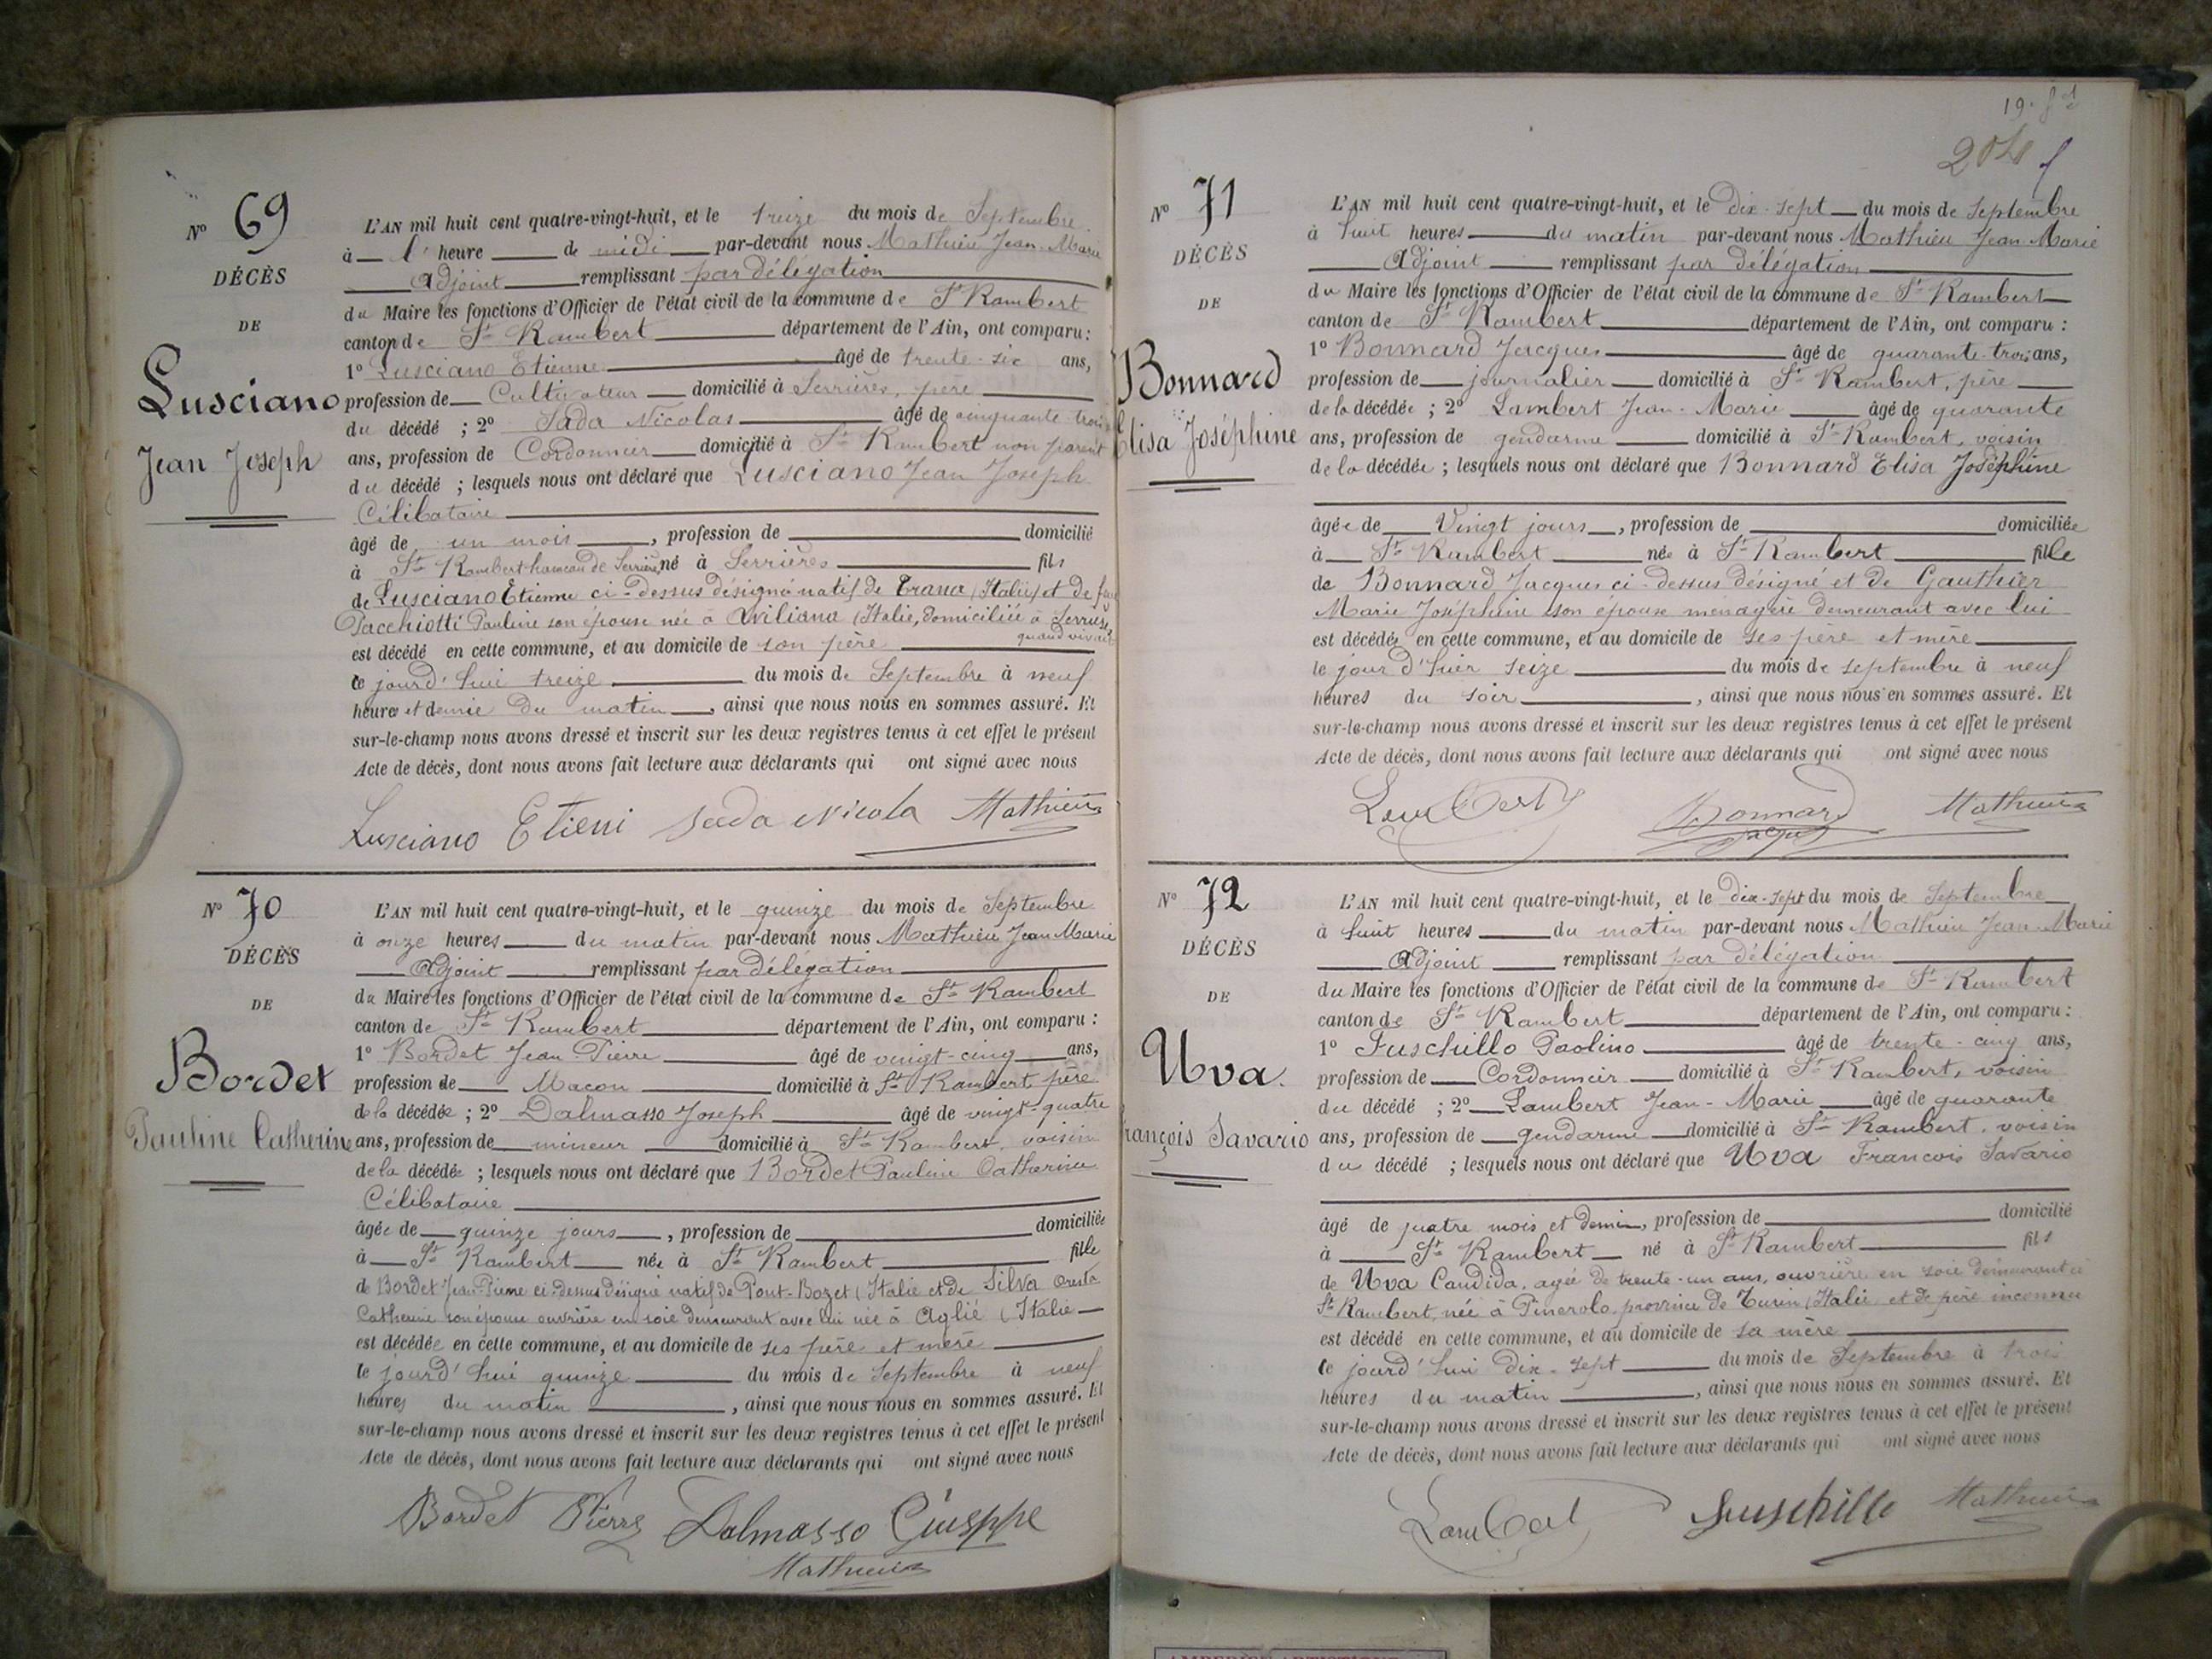 Nº 69
DÉCÈS
DE
Lusciano
Jean Joseph
L'AN mil huit cent quatre-vingt-huit, et le treize du mois de Septembre
à l' heure de midi par-devant nous Mathieu Jean-Marie
Adjoint remplissant par délégation
du Maire les fonctions d'Officier de l'état civil de la commune de St Rambert
canton de St Rambert département de l'Ain, ont comparu :
1º Lusciano Etienne âgé de trente-six ans,
profession de Cultivateur domicilié à Serrières, père
du décédé ; 2º Sada Nicolas âgé de cinquante trois
ans, profession de Cordonnier domicilié à St Rambert non parent
du décédé ; lesquels nous ont déclaré que Lusciano Jean Joseph
Célibataire
âgé de un mois, profession de domicilié
à St Rambert hameau de Serrières né à Serrières fils
de Lusciano Etienne ci-dessus désigné natif de Trana (Italie) et de
Pacchiotti Pauline son épouse née à Aviliana (Italie, domiciliée à Serrières
quand vivait
est décédé en cette commune, et au domicile de son père
ce jourd'hui treize du mois de Septembre à neuf
heures et demie du matin, ainsi que nous nous en sommes assuré. Et
sur-le-champ nous avons dressé et inscrit sur les deux registres tenus à cet effet le présent
Acte de décès, dont nous avons fait lecture aux déclarants qui ont signé avec nous
Lusciano Etieni Sada Nicola Mathieu
Nº 70
DÉCÈS
DE
Bordet
Pauline Catherine
L'AN mil huit cent quatre-vingt-huit, et le quinze du mois de Septembre
à onze heures du matin par-devant nous Mathieu Jean Marie
Adjoint remplissant par délégation
du Maire les fonctions d'Officier de l'état civil de la commune de St Rambert
canton de St Rambert département de l'Ain, ont comparu :
1º Bordet Jean Pierre âgé de vingt-cinq ans,
profession de Macon domicilié à St Rambert père
de la décédée ; 2º Dalmasso Joseph âgé de vingt-quatre
ans, profession de mineur domicilié à St Rambert, voisin
de la décédée ; lesquels nous ont déclaré que Bordet Pauline Catherine
Célibataire
âgée de quinze jours, profession de domiciliée
à St Rambert née à St Rambert fille
de Bordet Jean-Pierre ci-dessus désigné natif de Pont-Bozet (Italie et de Silva
Catherine son épouse ouvrière en soie demeurant avec lui née à Aglié (Italie
est décédée en cette commune, et au domicile de ses père et mère
le jourd'hui quinze du mois de Septembre à neuf
heures du matin, ainsi que nous nous en sommes assuré. Et
sur-le-champ nous avons dressé et inscrit sur les deux registres tenus à cet effet le présent
Acte de décès, dont nous avons fait lecture aux déclarants qui ont signé avec nous
Bordet Pierre Dalmasso Giuseppe
Mathieu
19.
204
Nº 71
DÉCÈS
DE
Bonnard
Elisa Joséphine
L'AN mil huit cent quatre-vingt-huit, et le dix-sept du mois de Septembre
à huit heures du matin par-devant nous Mathieu Jean-Marie
Adjoint remplissant par délégation
du Maire les fonctions d'Officier de l'état civil de la commune de St Rambert
canton de St Rambert département de l'Ain, ont comparu :
1º Bonnard Jacques âgé de quarante-trois ans,
profession de journalier domicilié à St Rambert, père
de la décédée ; 2º Lambert Jean-Marie âgé de quarante
ans, profession de gendarme domicilié à St Rambert, voisin
de la décédée ; lesquels nous ont déclaré que Bonnard Elisa Joséphine
âgée de Vingt jours, profession de domiciliée
à St Rambert née à St Rambert fille
de Bonnard Jacques ci-dessus désigné et de Gauthier
Marie Joséphine son épouse ménagère demeurant avec lui
est décédée en cette commune, et au domicile de ses père et mère
le jour d'hier seize du mois de septembre à neuf
heures du soir, ainsi que nous nous en sommes assuré. Et
sur-le-champ nous avons dressé et inscrit sur les deux registres tenus à cet effet le présent
Acte de décès, dont nous avons fait lecture aux déclarants qui ont signé avec nous
Lambert Bonnard Mathieu
Jacques
Nº 72
DÉCÈS
DE
Uva.
François Savario
L'AN mil huit cent quatre-vingt-huit, et le dix-sept du mois de Septembre
à huit heures du matin par-devant nous Mathieu Jean-Marie
Adjoint remplissant par délégation
du Maire les fonctions d'Officier de l'état civil de la commune de St Rambert
canton de St Rambert département de l'Ain, ont comparu :
1º Fuschillo Paolino âgé de trente-cinq ans,
profession de Cordonnier domicilié à St Rambert, voisin
du décédé ; 2º Lambert Jean-Marie âgé de quarante
ans, profession de gendarme domicilié à St Rambert, voisin
du décédé ; lesquels nous ont déclaré que Uva François Savario
âgé de quatre mois et demi, profession de domicilié
à St Rambert né à St Rambert fils
de Uva Candida, agée de trente-un ans, ouvrière en soie demeurant à
St Rambert, née à Pinerolo province de Turin (Italie et de père inconnu
est décédé en cette commune, et au domicile de sa mère
ce jourd'hui dix-sept du mois de Septembre à trois
heures du matin, ainsi que nous nous en sommes assuré. Et
sur-le-champ nous avons dressé et inscrit sur les deux registres tenus à cet effet le présent
Acte de décès, dont nous avons fait lecture aux déclarants qui ont signé avec nous
Lambert Fuschillo Mathieu